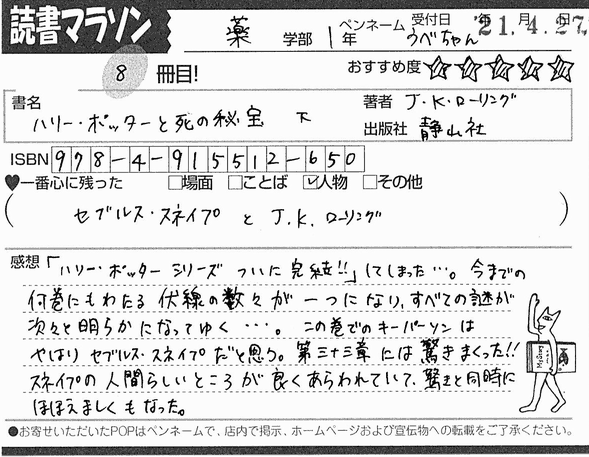 読書マラソン
薬 学部 1年 ペンネーム うべちゃん 受付日 '21.4.27
8 冊目! おすすめ度 ☆☆☆☆☆
書名 ハリー・ポッターと死の秘宝 下
著者 J・K・ローリング
出版社 静山社
ISBN 978-4-915512-650
♥一番心に残った □場面 □ことば ☑人物 □その他
( セブルス・スネイプ と J.K.ローリング )
感想 「ハリー・ポッター シリーズ ついに 完結!!」してしまった…。今までの
何巻にもわたる 伏線の数々が 一つになり、すべての謎が
次々と明らかになってゆく …。 この巻でのキーパーソンは
やはり セブルス・スネイプ だと思う。第三十三章 には 驚きまくった!!
スネイプの 人間らしいところ が 良くあらわれていて、驚きと同時に
ほほえましくもなった。
●お寄せいただいたPOPはペンネームで、店内で掲示、ホームページおよび宣伝物への転載をご了承ください。